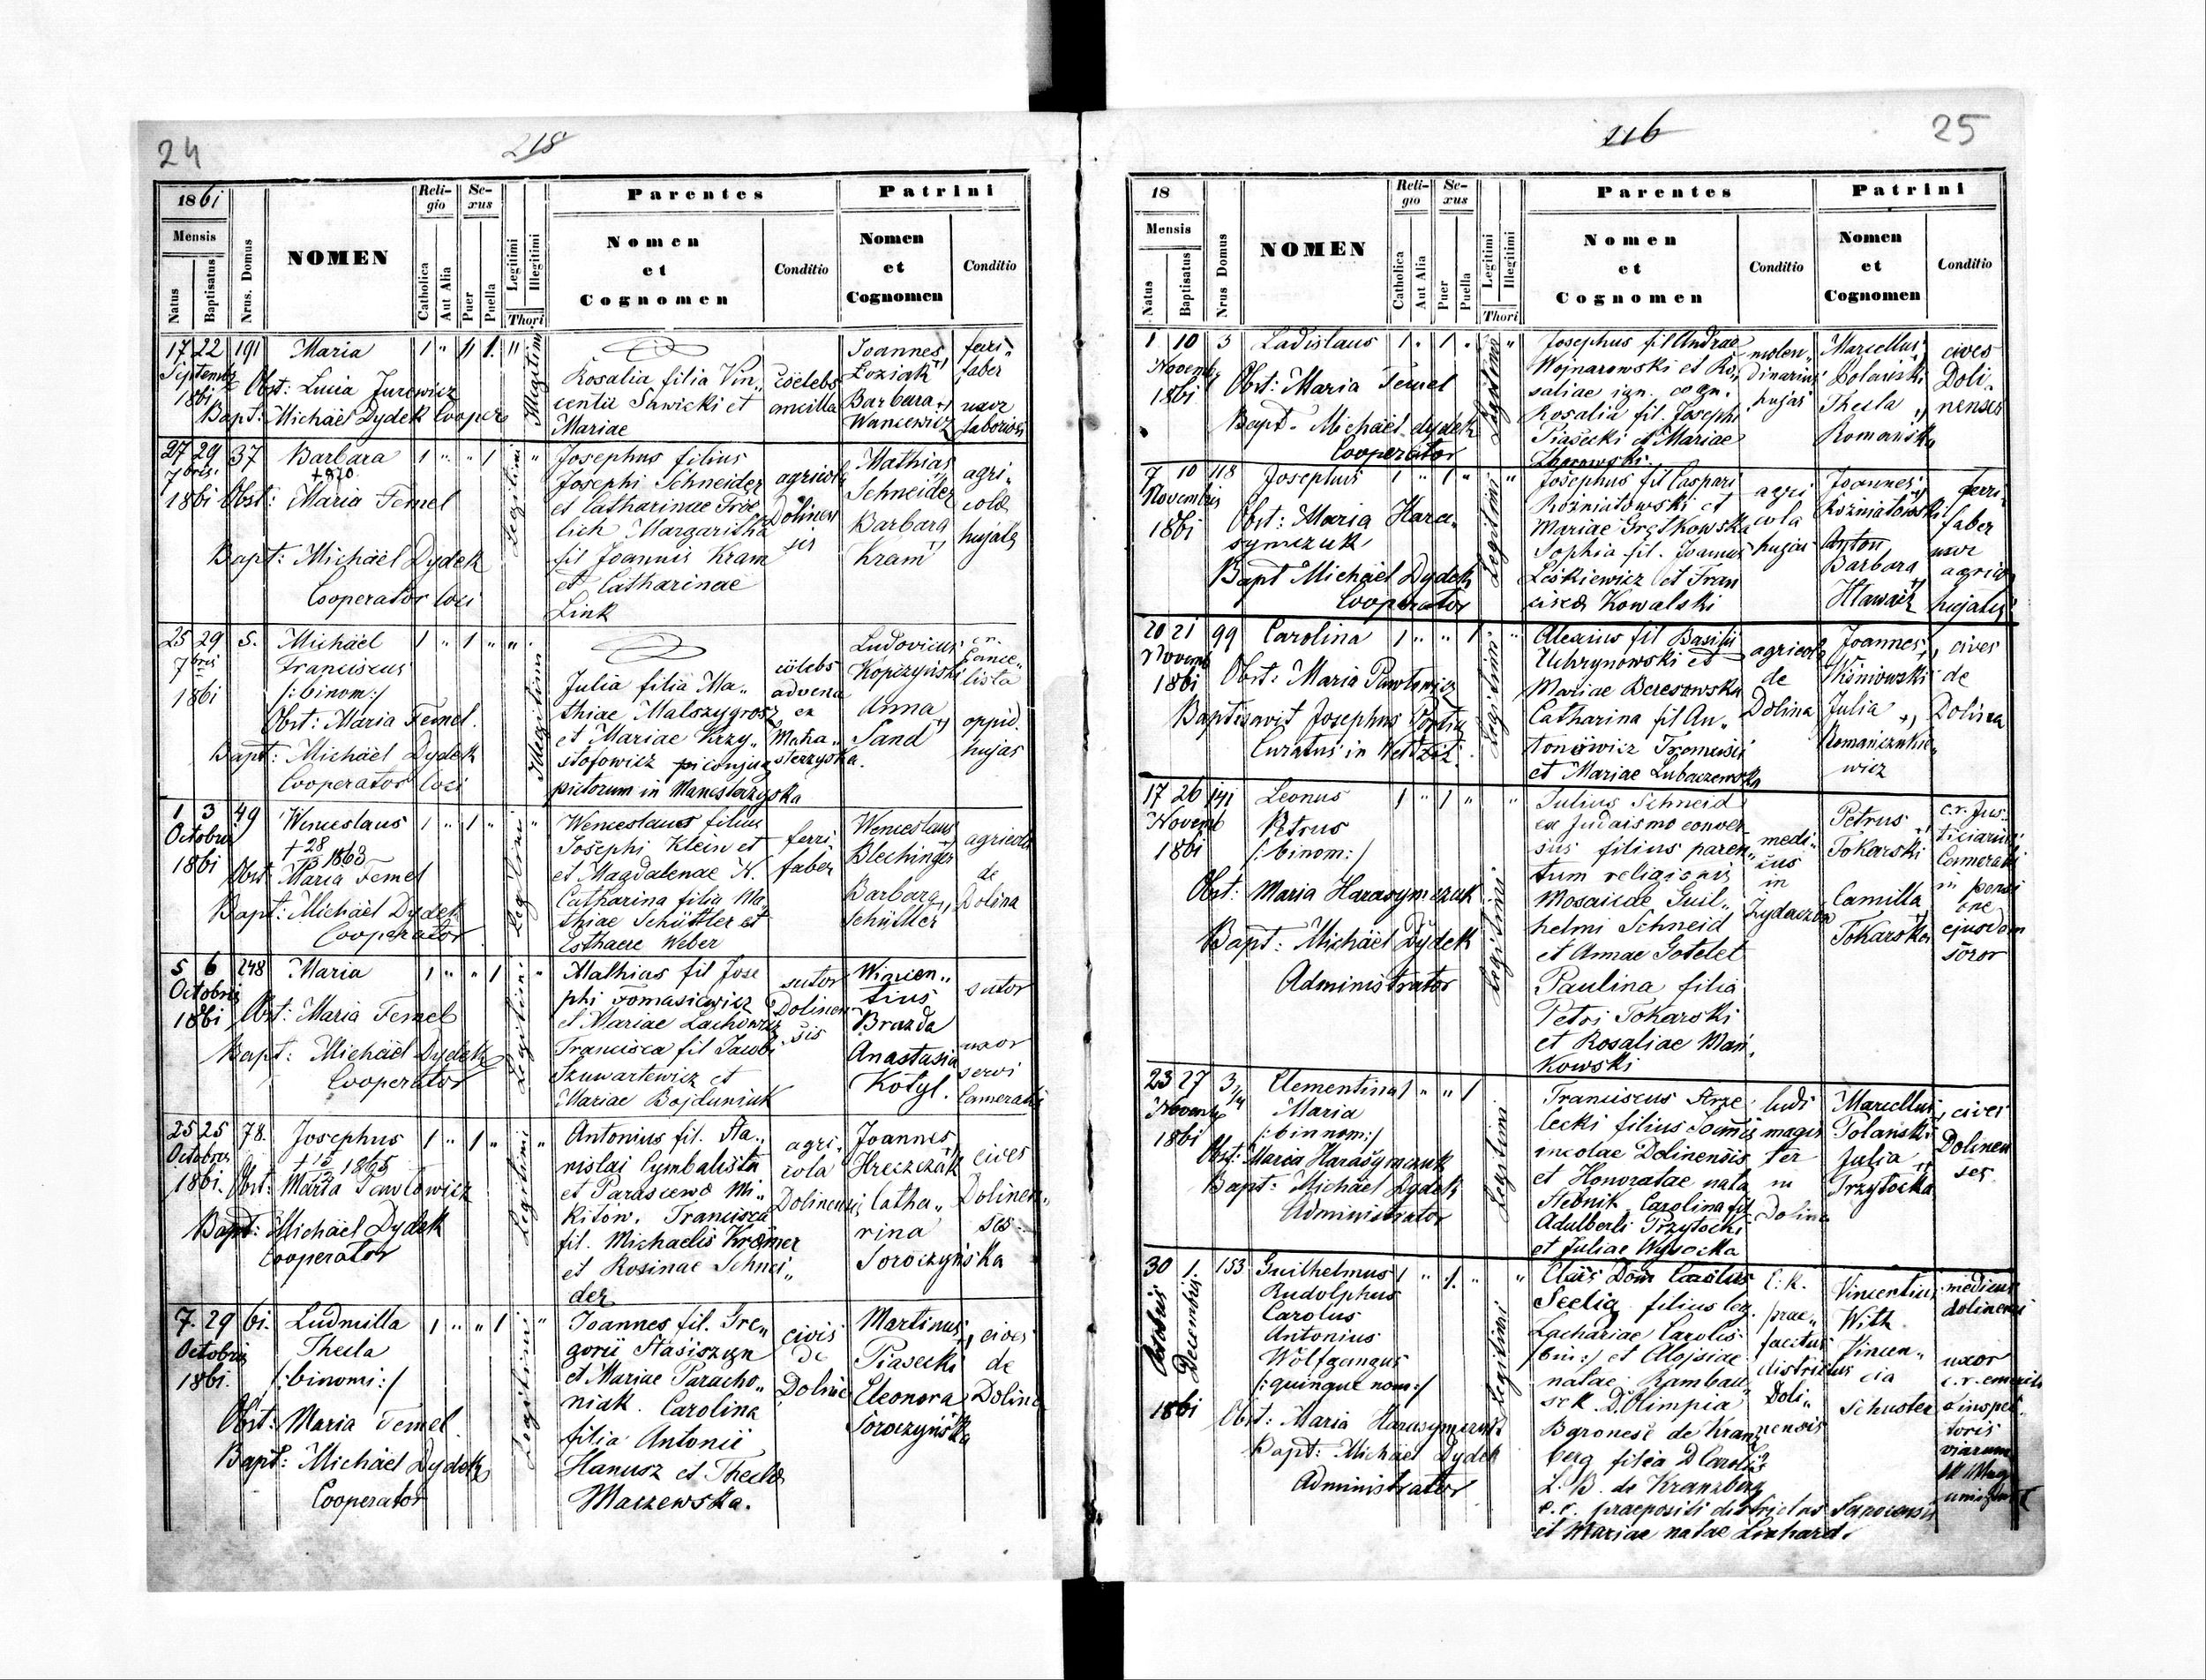 24
218
1861
Mensis
Natus
Baptisatus
Nrus. Domus
NOMEN
Reli-
gio
Catholica
Aut Alia
Se-
xus
Puer
Puella
Legitimi
Illegitimi
Thori
Parentes
Nomen
et
Cognomen
Conditio
Patrini
Nomen
et
Cognomen
Conditio
17 22 191 Maria
Septembr
1861
Obst: Lucia Jurewicz
Bapt: Michäel Dydek Cooper
Illegitimi
Rosalia filia Vin„
centii Sawicki et
Mariae
cöelebs
ancilla
Joannes
Łoziak
Barbara
Wancewicz
ferri„
faber
uxor
laboriosi
27 29 37 Barbara
7bris
1861
+870
Obst: Maria Temel
Bapt: Michäel Dydek
Cooperator loci
Legitimi
Josephus filius
Josephi Schneider
et Catharinae Fröe
lich Margaritha
fil Joannis Kram
et Catharinae
Link
agricola
Dolinen
sis
Mathias
Schneider
Barbara
Kram
agri„
colae
hujates
25 29 5. Michäel
7bris
1861
Franciscus
/:binom:/
Obst: Maria Temel.
Bapt: Michäel Dydek
Cooperator loci
Illegitimi
Julia filia Ma„
thiae Malszygrosz
et Mariae Krzy„
stofowicz
pictorum in Manesterzyska
cölebs
advena
ex
Ludovicus
Kopczyński
Anna
Sand
lista
oppid.
hujas
1 3 49 Wenceslaus
Octobris
1861
+28
1863
Obst: Maria Temel
Bapt: Michäel Dydek
Cooperator
Legitimi
Wenceslaus filius
Josephi Klein et
et Magdalenae N.
Catharina filia Ma„
thiae Schüttler et
Esthaere Weber
ferri
faber
Wenceslaus
Blechinger
Barbara
Schüttler
agricola
de
Dolina
5 6 248 Maria
Octobris
1861
Obst: Maria Temel
Bapt: Michäel Dydek
Cooperator
Legitimi
Mathias fil Jose
phi Tomasiewicz
et Mariae Lachowicz
Francisca fil Jacobi
Szuwartewicz et
Mariae Bojduniuk
sutor
Dolinen
sis
Wincen„
tius
Brazda
Anastasia
Kotyl.
sutor
uxor
servi
Cameralis
25 25 78. Josephus
Octobris
1861.
+15 1865
Obst: Maria Pawlowicz
Bapt: Michäel Dydek
Cooperator
Legitimi
Antonius fil. Sta„
nislai Cymbalista
et Parascewe Mi„
kitów. Francisca
fil. Michaelis Krämer
et Rosinae Schnei„
der
agri„
cola
Dolinensis
Joannes
Hreczczak
Catha„
rina
Soroczyńska
cives
Dolinen„
ses
7. 29 61. Ludmilla
Octobris
1861.
Thecla
/:binomi:/
Obst: Maria Temel.
Bapt: Michäel Dydek
Cooperator
Legitimi
Joannes fil. Gre„
gorii Stasiszyn
et Mariae Paracho„
niak. Carolina
filia Antonii
Hanusz et Theclae
Maczewska.
civis
de
Dolina
Martinus
Piasecki
Eleonora
Soroczyńska
cives
de
Dolina
25
216
18
Mensis
Natus
Baptisatus
Nrus Domus
NOMEN
Reli-
gio
Catholica
Aut Alia
Se-
xus
Puer
Puella
Legitimi
Illegitimi
Thori
Parentes
Nomen
et
Cognomen
Conditio
Patrini
Nomen
et
Cognomen
Conditio
1 10 3 Ladislaus
Novembr
1861
Obst: Maria Temel
Bapt. Michäel dydek
Cooperator
Legitimi
Josephus fil Andrae
Wojnarowski et Ro„
saliae ign. cogn.
Rosalia fil. Josephi
Piasecki et Mariae
molen„
dinarius
hujas
Marcellus
Polański
Thecla
Romańska
cives
Doli„
nenses
7 10 118 Josephus
Novembris
1861
Obst: Maria Hara„
symczuk
Bapt Michäel Dydek
Cooperator
Legitimi
Josephus fil Caspari
Rożniatowski et
Mariae Grętkowska
Sophia fil. Joannis
Leśkiewicz et Fran
cisca Kowalski
agri
cola
hujas
Joannes
Rożniatowski
Anton
Barbara
Hławacz
ferri„
faber
uxor
agricol
hujatis
20 21 99 Carolina
Novemb
1861
Obst: Maria Pawlowicz
Baptisavit Josephus
Curatus in Weldzirz.
Legitimi
Alexius fil Basilii
Uchrynowski et
Mariae Beresowska
Catharina fil An„
toniewicz
et Mariae Lubaczewska
agricola
de
Dolina
Joannes
Wiśniowski
Julia
Romańczukie„
wicz
cives
de
Dolina
17 26 141 Leonus
Novemb
1861
Petrus
/:binom:/
Obst: Maria Harasymczuk
Bapt: Michäel Dydek
Administrator
Legitimi
Julius Schneid
ex Judaismo conver
sus filius paren„
tum religionis
Mosaicae Guil„
helmi Schneid
et Annae Gotelet
Paulina filia
Petri Tokarski
et Rosaliae Mań„
kowski
medi„
cus
in
Żydaczów
Petrus
Tokarski
Camilla
Tokarska
c.r. Jus„
ticiarius
Cameralis
in pensi
one
ejusdem
soror
23 27 3/4 Clementina
Novemb
1861
Maria
/:binnom:/
Obst: Maria Harasymczuk
Bapt: Michäel Dydek
Administrator
Legitimi
Franciscus Strze
lecki filius Joannis
incolae Dolinensis
et Honoratae nata
Stebnik. Carolina fil.
Adalberti Przytocki
et Juliae Wysocka
ludi
magis
ter
in
Dolina
Marcellus
Polański
Julia
Przytocka
cives
Dolinen
ses
30 1. 153 Guilhelmus
Octobris
Decembris
1861
Rudolphus
Carolus
Antonius
Wolfgangus
/:quinque nom:/
Obst: Maria Harasymczuk
Bapt: Michäel Dydek
Administrator
Legitimi
Claris Dom Carolus
Seelig filius leg.
Zachariae Carolis
/bin:/ et Alojsiae
natae Rambau„
sek D. Olimpia
Baronesse de Kranz
berg filia D Caroli
L. B. de Kranzberg
c.r. praepositi districtus
et Mariae natae Linhard.
C.K.
prae„
fectus
districtus
Doli„
nensis
Vincentius
With
Vincen„
cia
Schuster
medicus
dolinensis
uxor
c.r. emeriti
inspec
toris
viarum